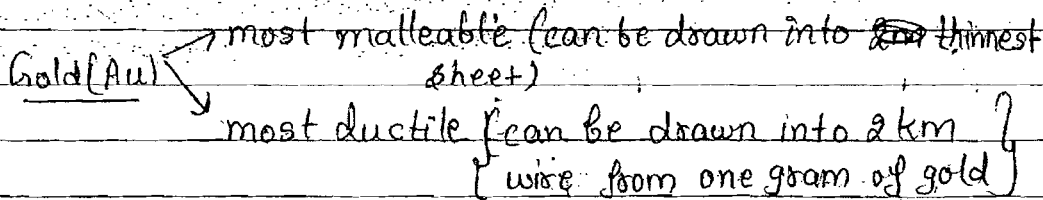 most malleable (can be drawn into thinnest
Gold(Au)
sheet)
most ductile {can be drawn into 2 km }
{ wire from one gram of gold }